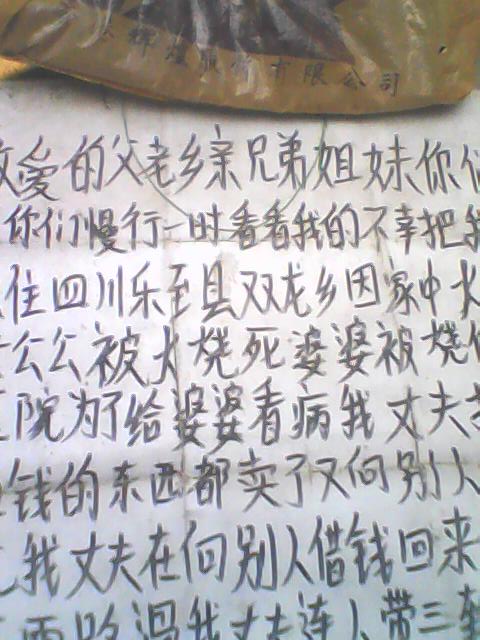 辉煌股份有限公司
敬爱的父老乡亲兄弟姐妹你们
你们慢行一时看看我的不幸把我
住四川乐至县双龙乡因家中火
公公被火烧死婆婆被烧伤
院为了给婆婆看病我丈夫
钱的东西都卖了又向别人
我丈夫在向别人借钱回来
雨路滑我丈夫连人带三轮